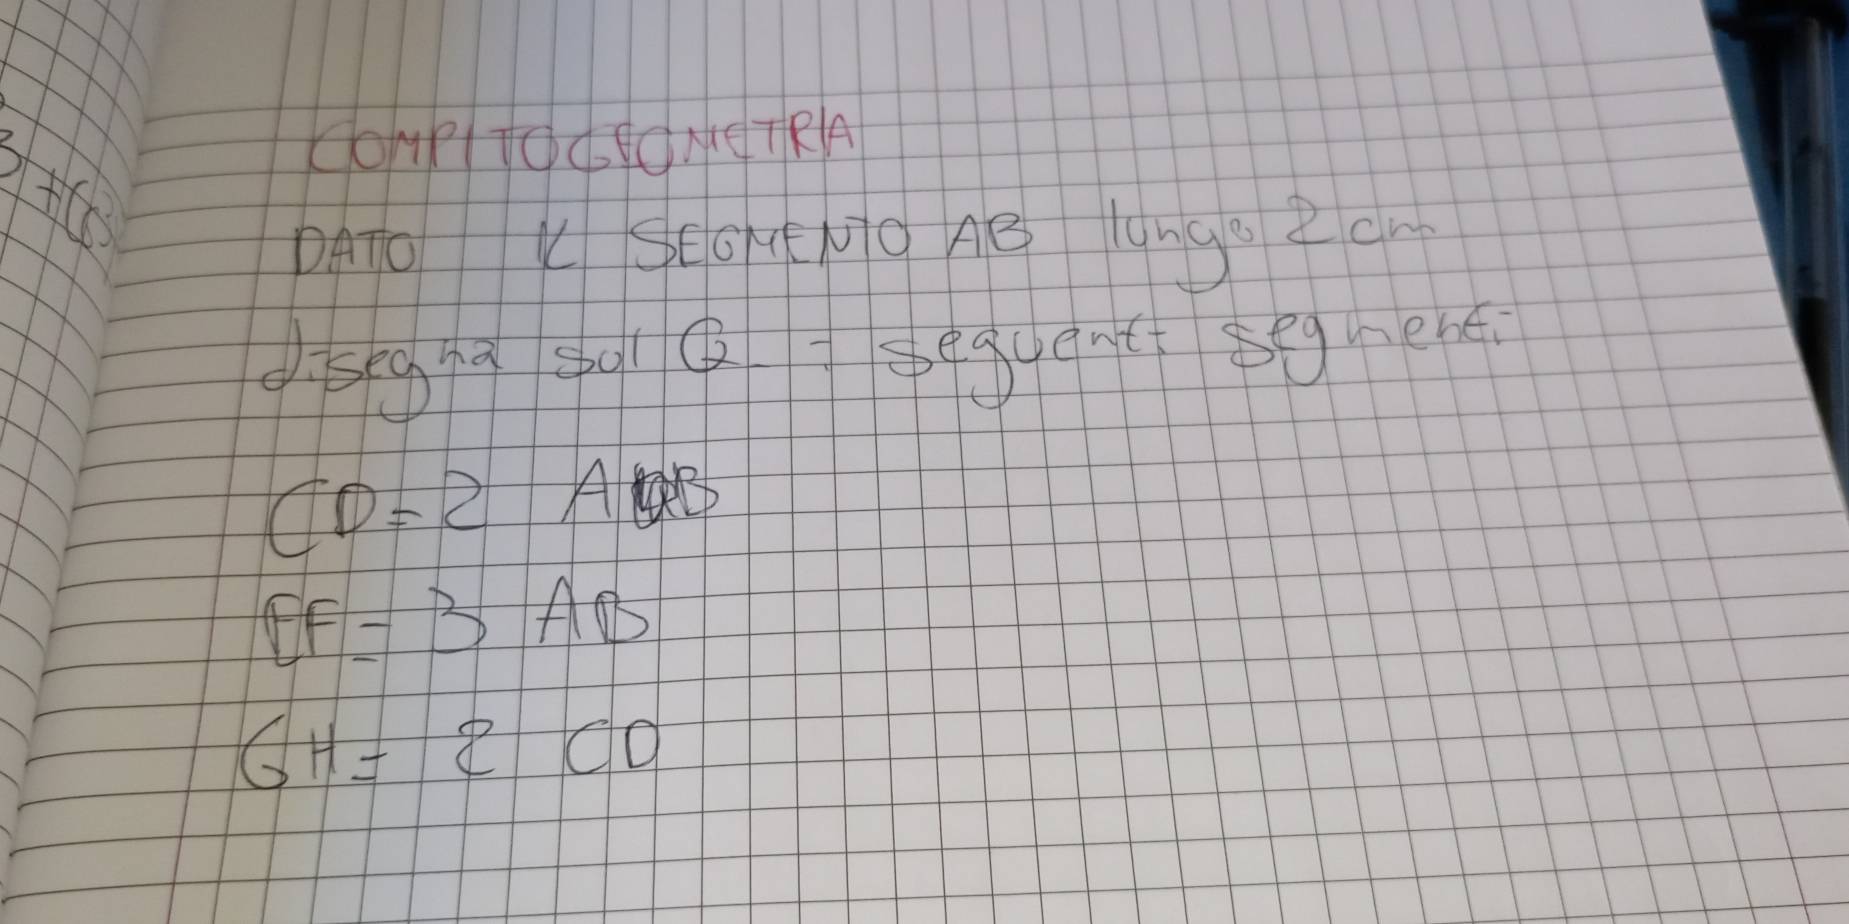 COMPITO GEOMETRIA
DATO IL SEGMENTO AB lungo 2 cm
disegna sul Q i seguenti segmenti
CD = 2 AB
EF = 3 AB
GH = 2 CD